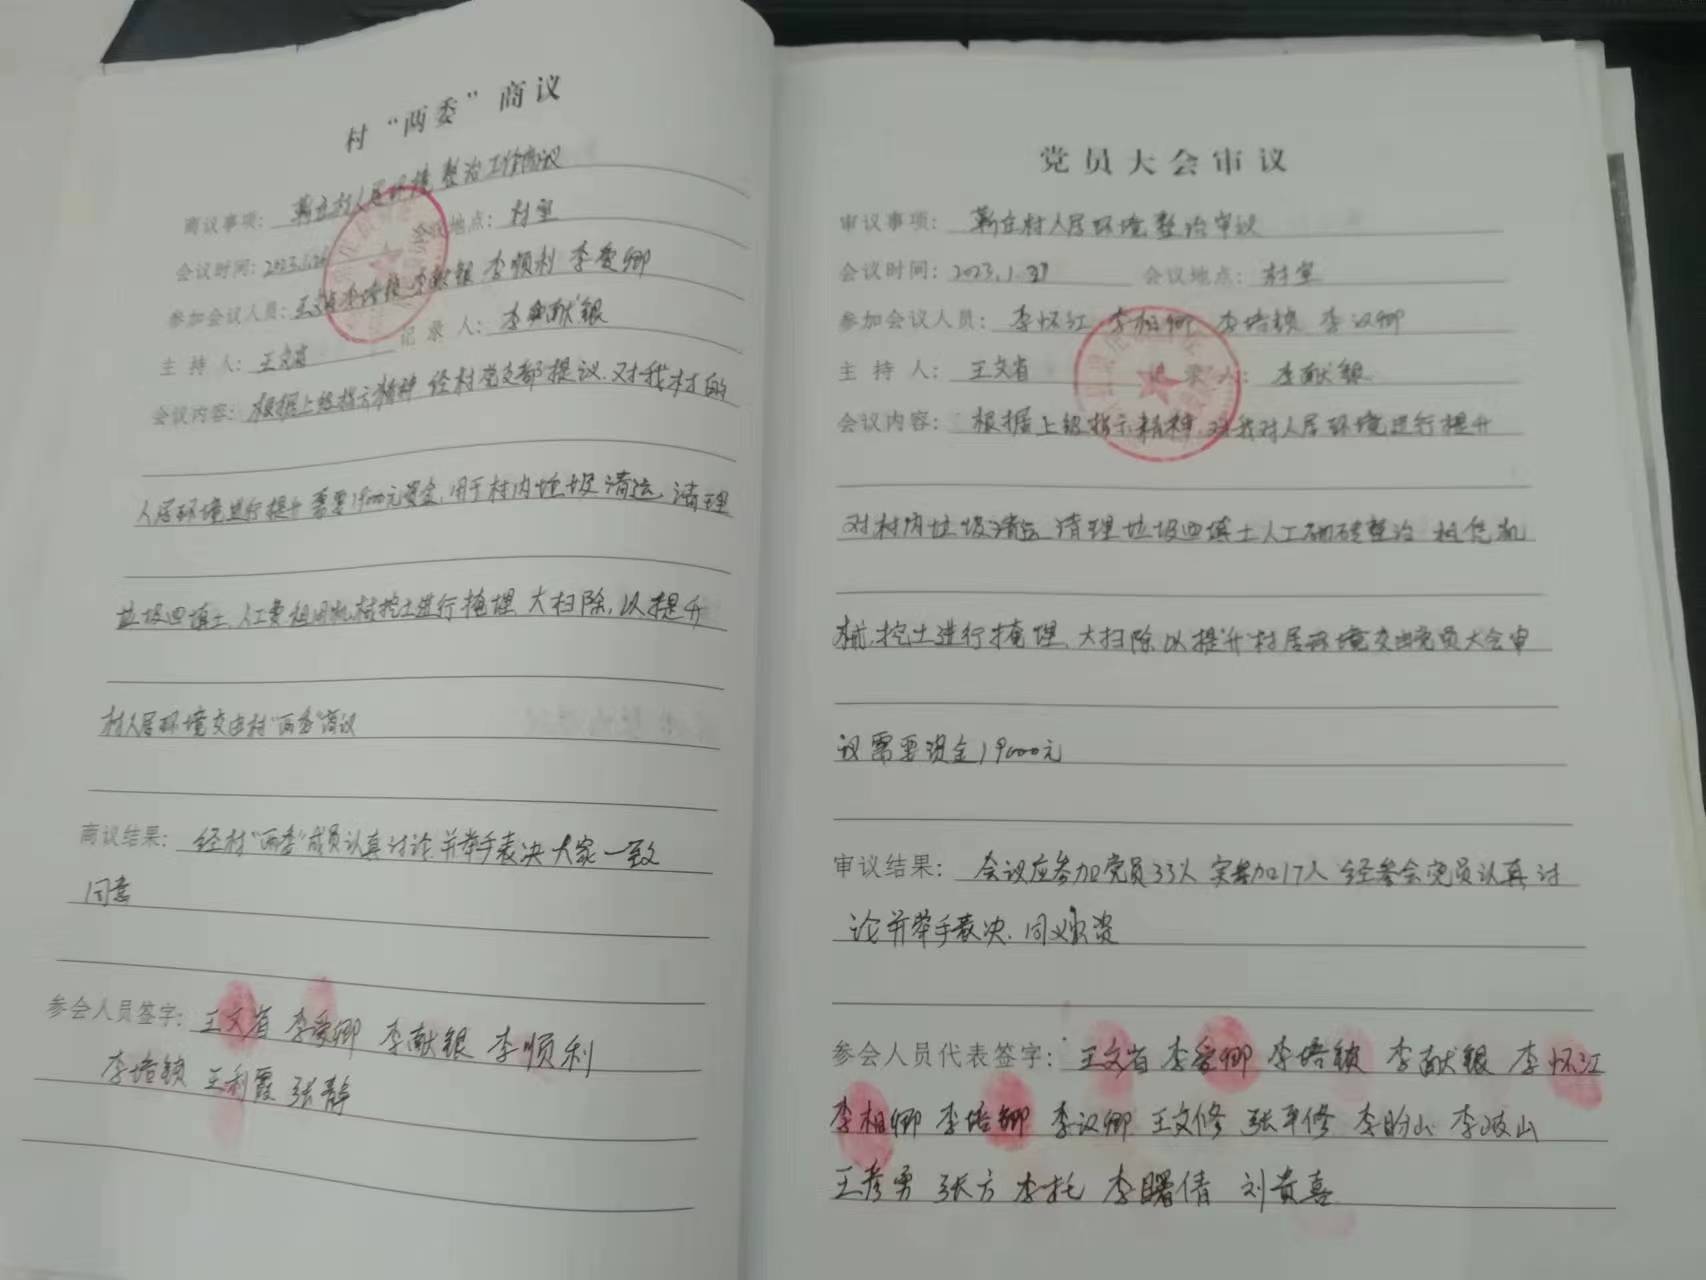 村“两委”商议
商议事项: 靳庄村人居环境整治工作商议
会议时间: 2023.1.26 会议地点: 村室
参加会议人员: 王文省 李培锁 李献银 李顺利 李爱卿
主持人: 王文省 记录人: 李献银
会议内容: 根据上级指示精神 经村党支部提议.对我村的
人居环境进行提升需要19000元资金,用于村内垃圾清运,清理
垃圾回填土,人工费租用机械挖土进行掩埋 大扫除,以提升
村人居环境交由村“两委”商议
商议结果: 经村“两委”成员认真讨论并举手表决大家一致
同意
参会人员签字: 王文省 李爱卿 李献银 李顺利
李培锁 王利霞 张静
党员大会审议
审议事项: 靳庄村人居环境整治审议
会议时间: 2023.1.27 会议地点: 村室
参加会议人员: 李怀江 李相卿 李培锁 李汉卿
主持人: 王文省 记录人: 李献银
会议内容: 根据上级指示精神,对我对人居环境进行提升
对村内垃圾清运 清理垃圾回填土人工 整治 租凭机
械.挖土进行掩埋.大扫除以提升村居环境交由党员大会审
议需要资金19000元
审议结果: 会议应参加党员33人 实参加17人 经参会党员认真讨
论并举手表决.同
参会人员代表签字: 王文省 李爱卿 李培锁 李献银 李怀江
李相卿 李培卿 李汉卿 王文修 张平修 李 山 李 山
王彦勇 张方 李托 李曙倩 刘贵喜